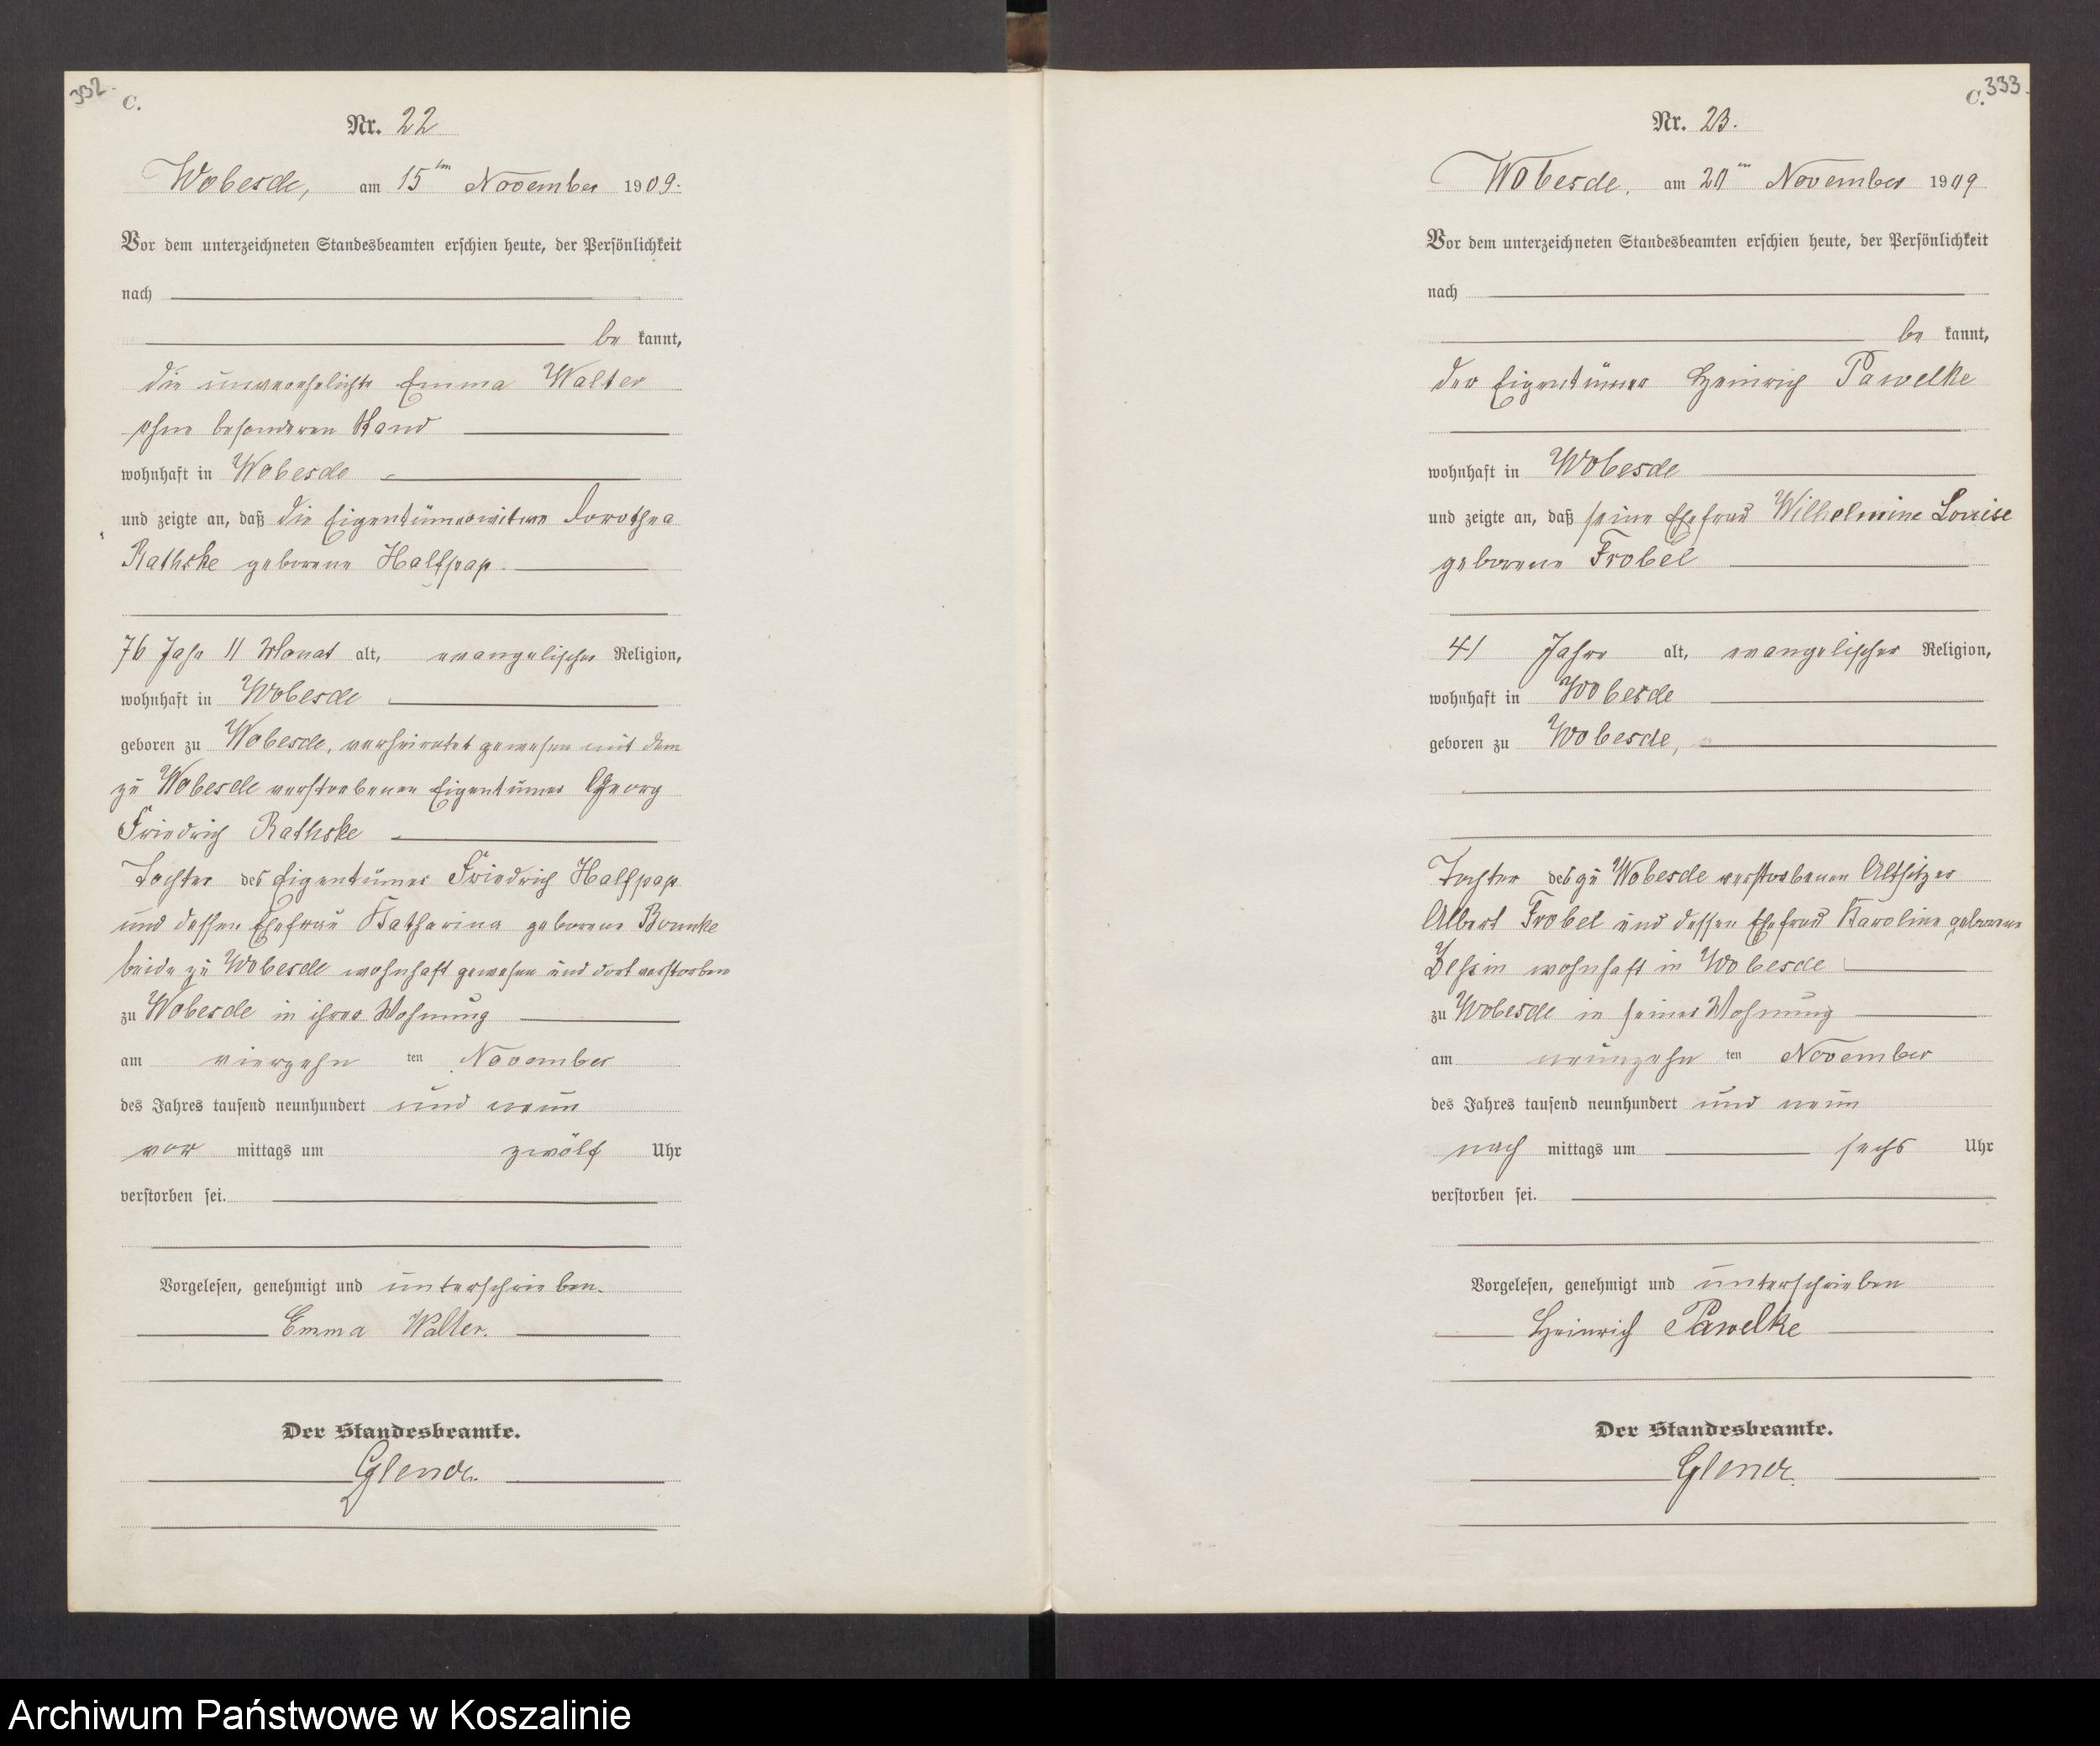 332.
C.
Nr. 22
Wobesde, am 15ten November 1909.
Vor dem unterzeichneten Standesbeamten erschien heute, der Persönlichkeit
nach
be kannt,
die unverehelichte Emma Walter
ohne besonderen Stand
wohnhaft in Wobesde
und zeigte an, daß die Eigentümerwitwe Dorothea
Rathske geborene Halfpap.
76 Jahr 11 Monat alt, evangelischer Religion,
wohnhaft in Wobesde
geboren zu Wobesde, verheiratet gewesen mit dem
zu Wobesde verstorbenen Eigentümer Georg
Friedrich Rathske
Tochter des Eigentümer Friedrich Halfpap
und dessen Ehefrau Katharina geborene
beide zu Wobesde wohnhaft gewesen und dort verstorben
zu Wobesde in ihrer Wohnung
am vierzehn ten November
des Jahres tausend neunhundert und neun
vor mittags um zwölf Uhr
verstorben sei.
Vorgelesen, genehmigt und unterschrieben.
Emma Walter.
Der Standesbeamte.
Glende.
C. 333.
Nr. 23.
Wobesde, am 20ten November 1909
Vor dem unterzeichneten Standesbeamten erschien heute, der Persönlichkeit
nach
be kannt,
der Eigentümer Heinrich Pawelke
wohnhaft in Wobesde
und zeigte an, daß seine Ehefrau Wilhelmine Louise
geborene Frobel
41 Jahre alt, evangelischer Religion,
wohnhaft in Wobesde
geboren zu Wobesde,
Tochter des zu Wobesde verstorbenen Altsitzer
Albert Frobel und dessen Ehefrau Karoline geborene
wohnhaft in Wobesde
zu Wobesde in seiner Wohnung
am neunzehn ten November
des Jahres tausend neunhundert und neun
nach mittags um sechs Uhr
verstorben sei.
Vorgelesen, genehmigt und unterschrieben
Heinrich Pawelke
Der Standesbeamte.
Glende.
Archiwum Państwowe w Koszalinie